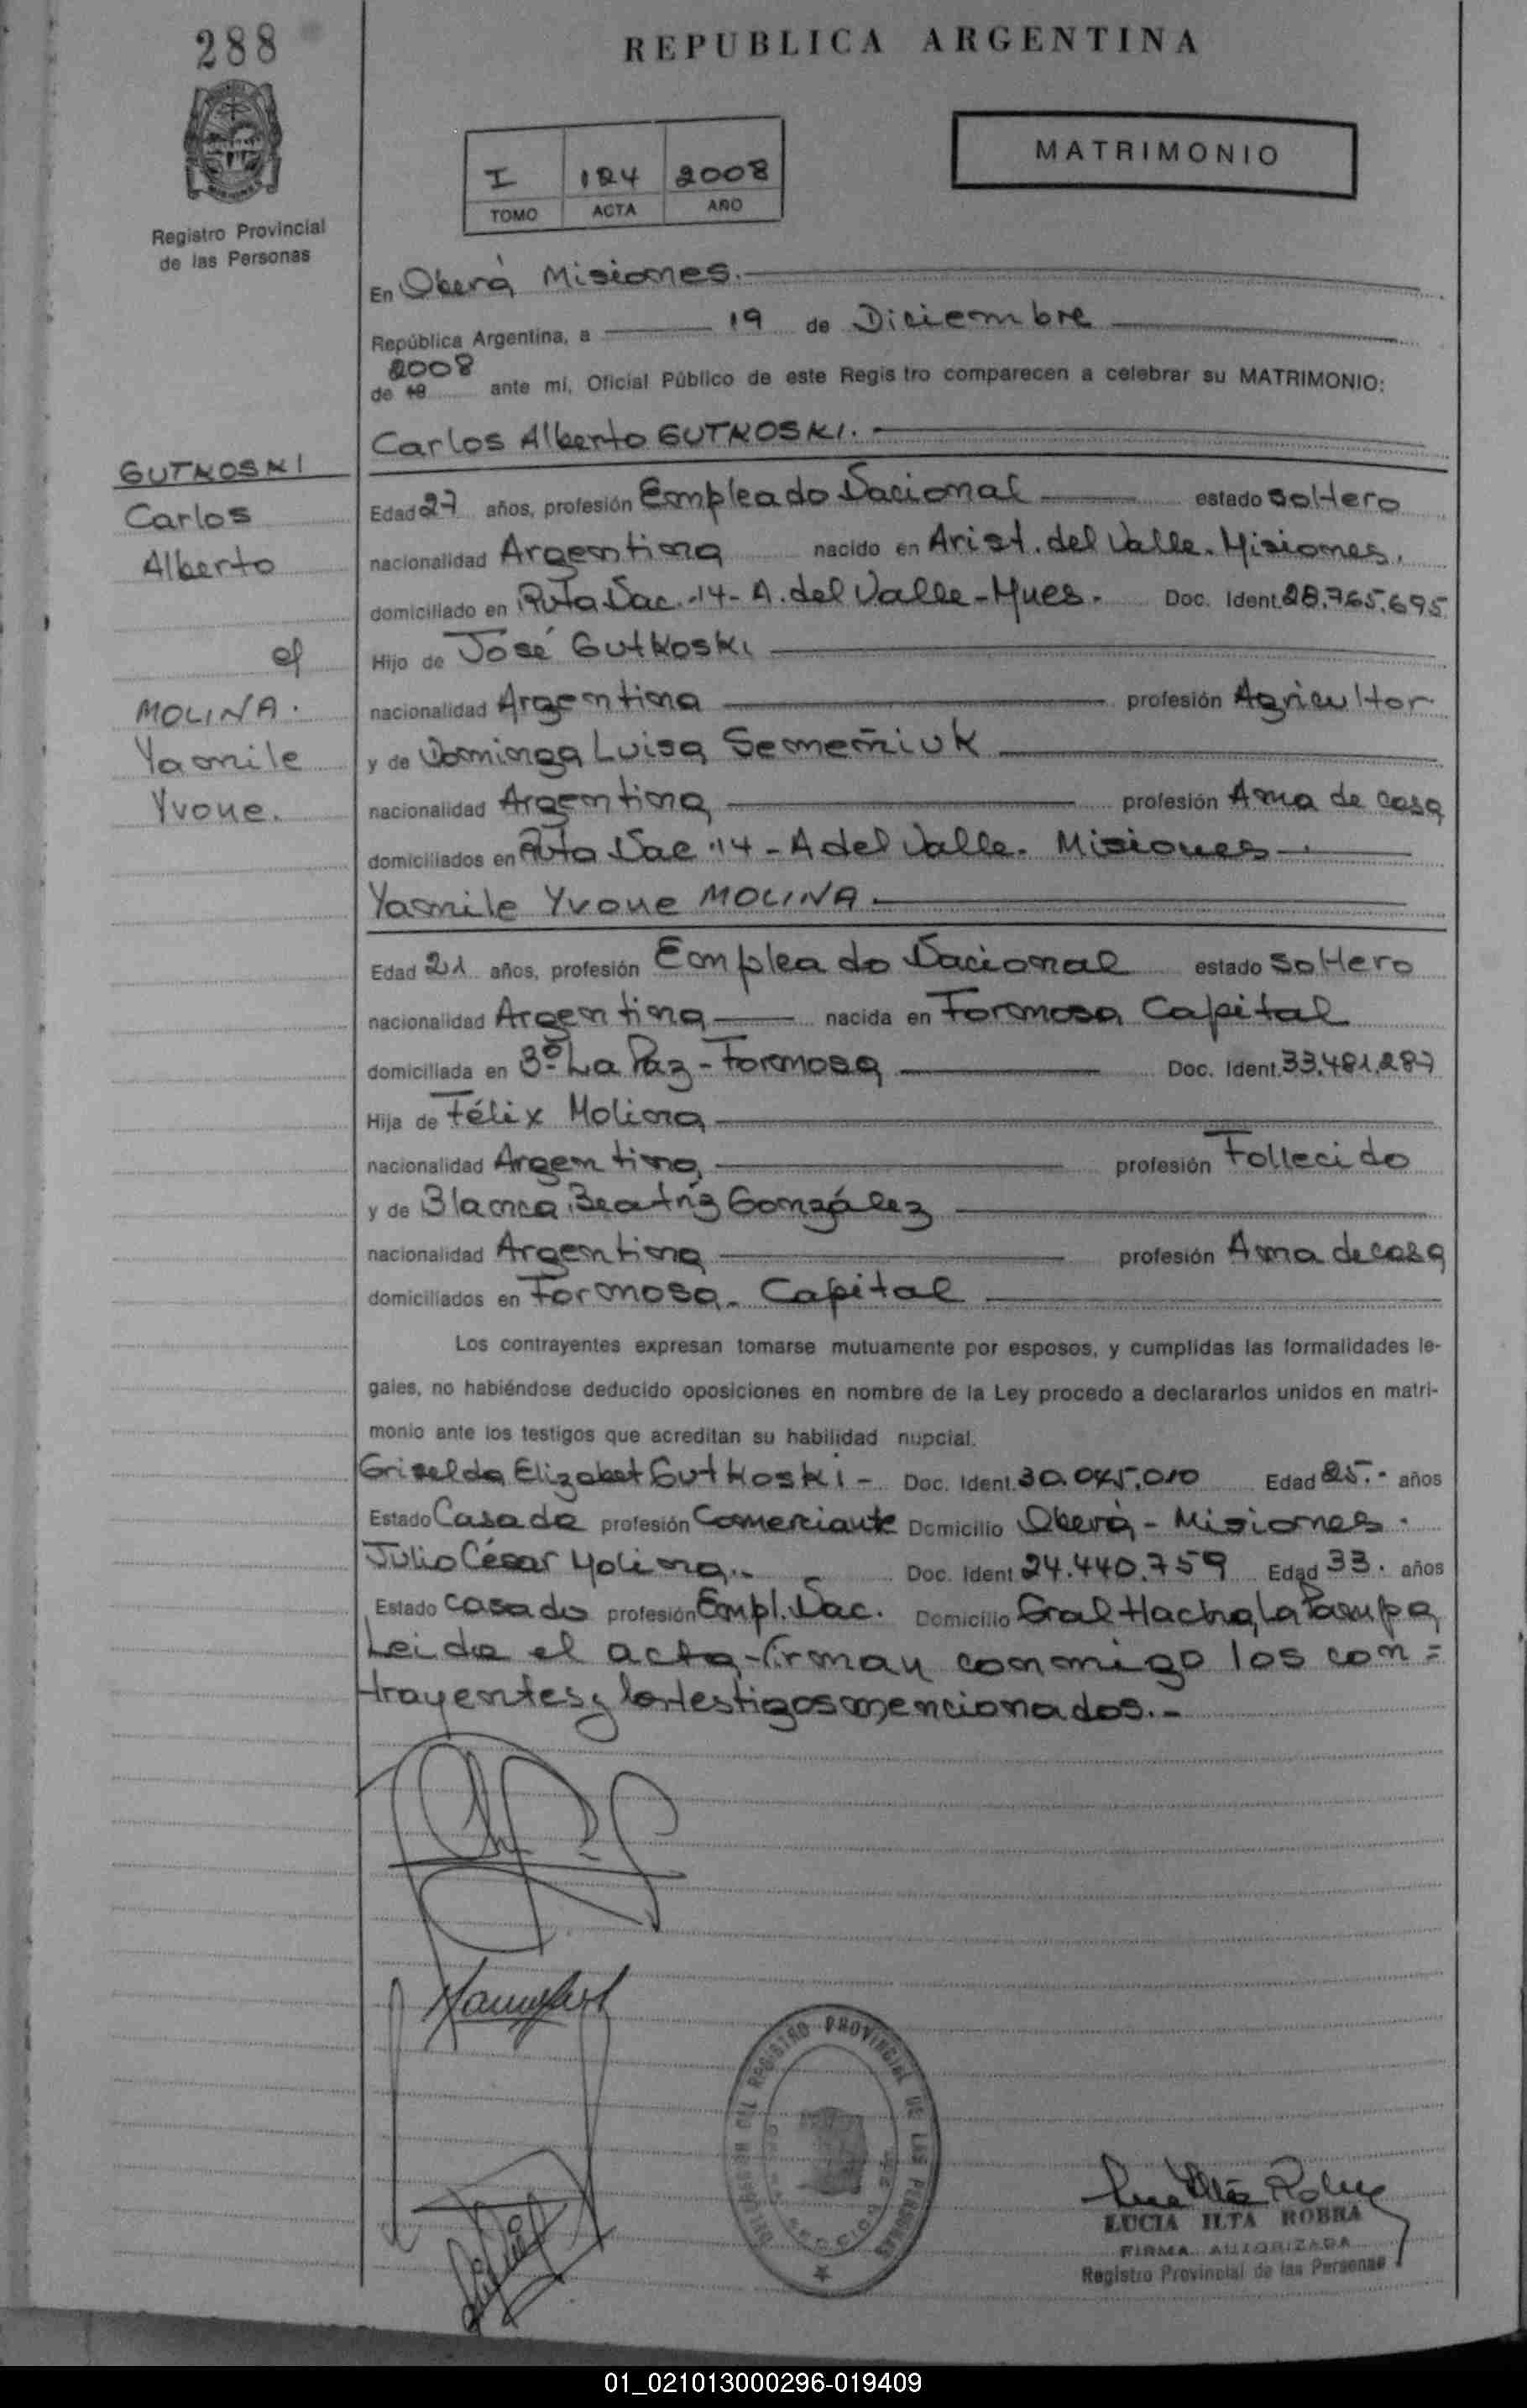 288
REPUBLICA ARGENTINA
MATRIMONIO
I 124 2008
TOMO ACTA AÑO
Registro Provincial
de las Personas
En Oberá Misiones.
República Argentina, a 19 de Diciembre
2008
de 19 ante mí, Oficial Público de este Registro comparecen a celebrar su MATRIMONIO:
Carlos Alberto GUTKOSKI.
GUTKOSKI
Carlos
Alberto
c/
MOLINA.
Yasmile
Yvone.
Edad 27 años, profesión Empleado Nacional estado soltero
nacionalidad Argentina nacido en Arist. del Valle. Misiones.
domiciliado en Ruta Nac. 14 - A. del Valle - Mnes. Doc. Ident. 28.765.695
Hijo de José Gutkoski
nacionalidad Argentina profesión Agricultor
y de Dominga Luisa Semeñiuk
nacionalidad Argentina profesión Ama de casa
domiciliados en Ruta Nac 14 - A del Valle. Misiones.
Yasmile Yvone MOLINA.
Edad 21 años, profesión Empleado Nacional estado soltero
nacionalidad Argentina nacida en Formosa Capital
domiciliada en Bº La Paz - Formosa Doc. Ident. 33.481.287
Hija de Félix Molina
nacionalidad Argentina profesión Fallecido
y de Blanca Beatríz González
nacionalidad Argentina profesión Ama de casa
domiciliados en Formosa - Capital
Los contrayentes expresan tomarse mutuamente por esposos, y cumplidas las formalidades le-
gales, no habiéndose deducido oposiciones en nombre de la Ley procedo a declararlos unidos en matri-
monio ante los testigos que acreditan su habilidad nupcial.
Griselda Elizabet Gutkoski - Doc. Ident. 30.045.010 Edad 25.- años
Estado Casada profesión Comerciante Domicilio Oberá - Misiones.
Julio César Molina.. Doc. Ident 24.440.759 Edad 33. años
Estado casado profesión Empl. Nac. Domicilio Gral Hacha, La Pampa
Leida el acta, firman conmigo los con=
trayentes y los testigos mencionados.-
REGISTRO PROVINCIAL DE LAS PERSONAS
LUCIA ILTA ROBRA
FIRMA AUTORIZADA
Registro Provincial de las Personas
01_021013000296-019409